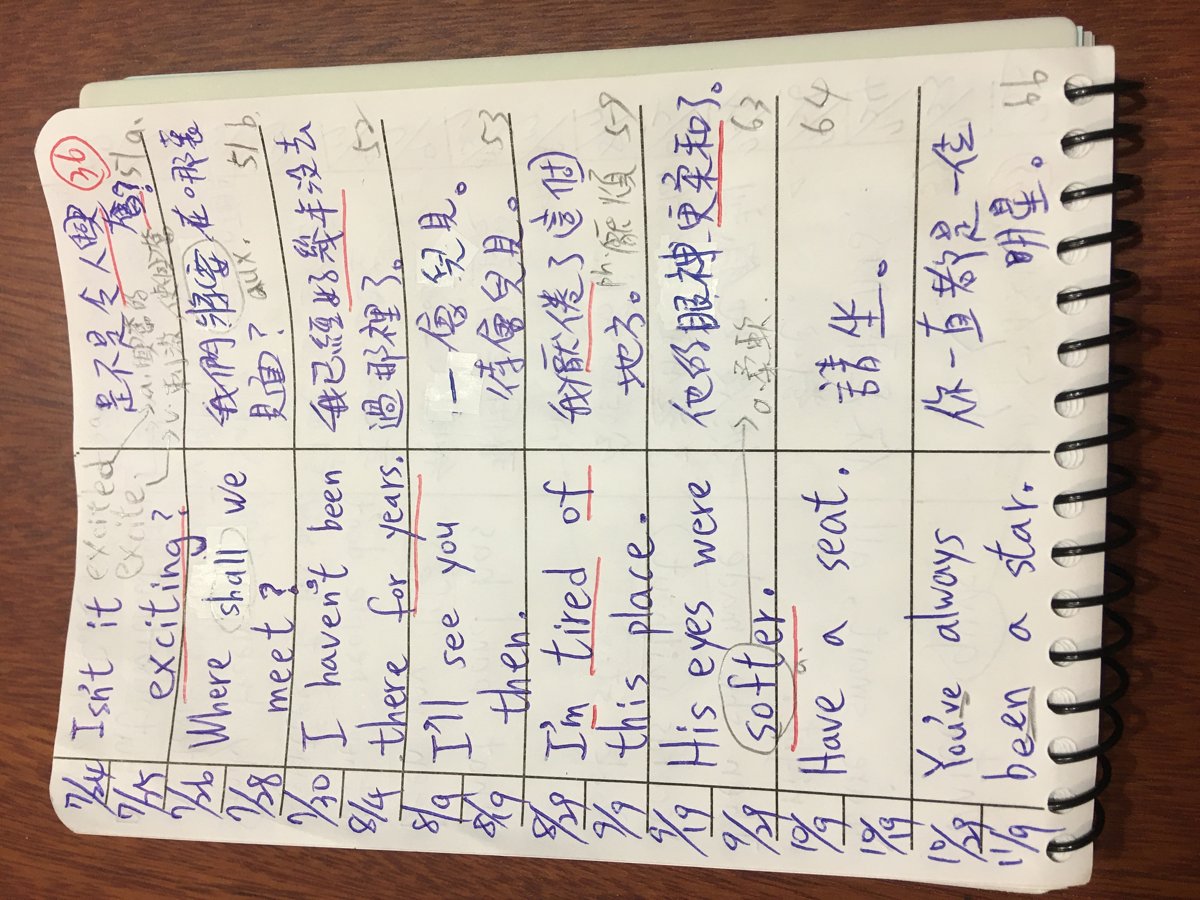 36
7/24
7/25
Isn't it
exciting?
excited
excite.
是不是令人興
奮?
51a.
→a.興奮的
→v.
7/26
7/28
Where shall we
meet?
我們將要在哪裏
見面?
aux.
51b
7/30
8/4
I haven't been
there for years.
我已經好幾年沒去
過那裡了。
52
8/9
8/19
I'll see you
then.
一會兒見。
待會兒見。
53
8/29
9/9
I'm tired of
this place.
我厭倦了這個
地方。
ph.厭煩
59
9/19
9/29
His eyes were
softer.
他的眼神更柔和了。
→a柔軟
63
10/9
10/19
Have a seat.
請坐。
64
10/29
11/9
You've always
been a star.
你一直都是一位
明星。
66